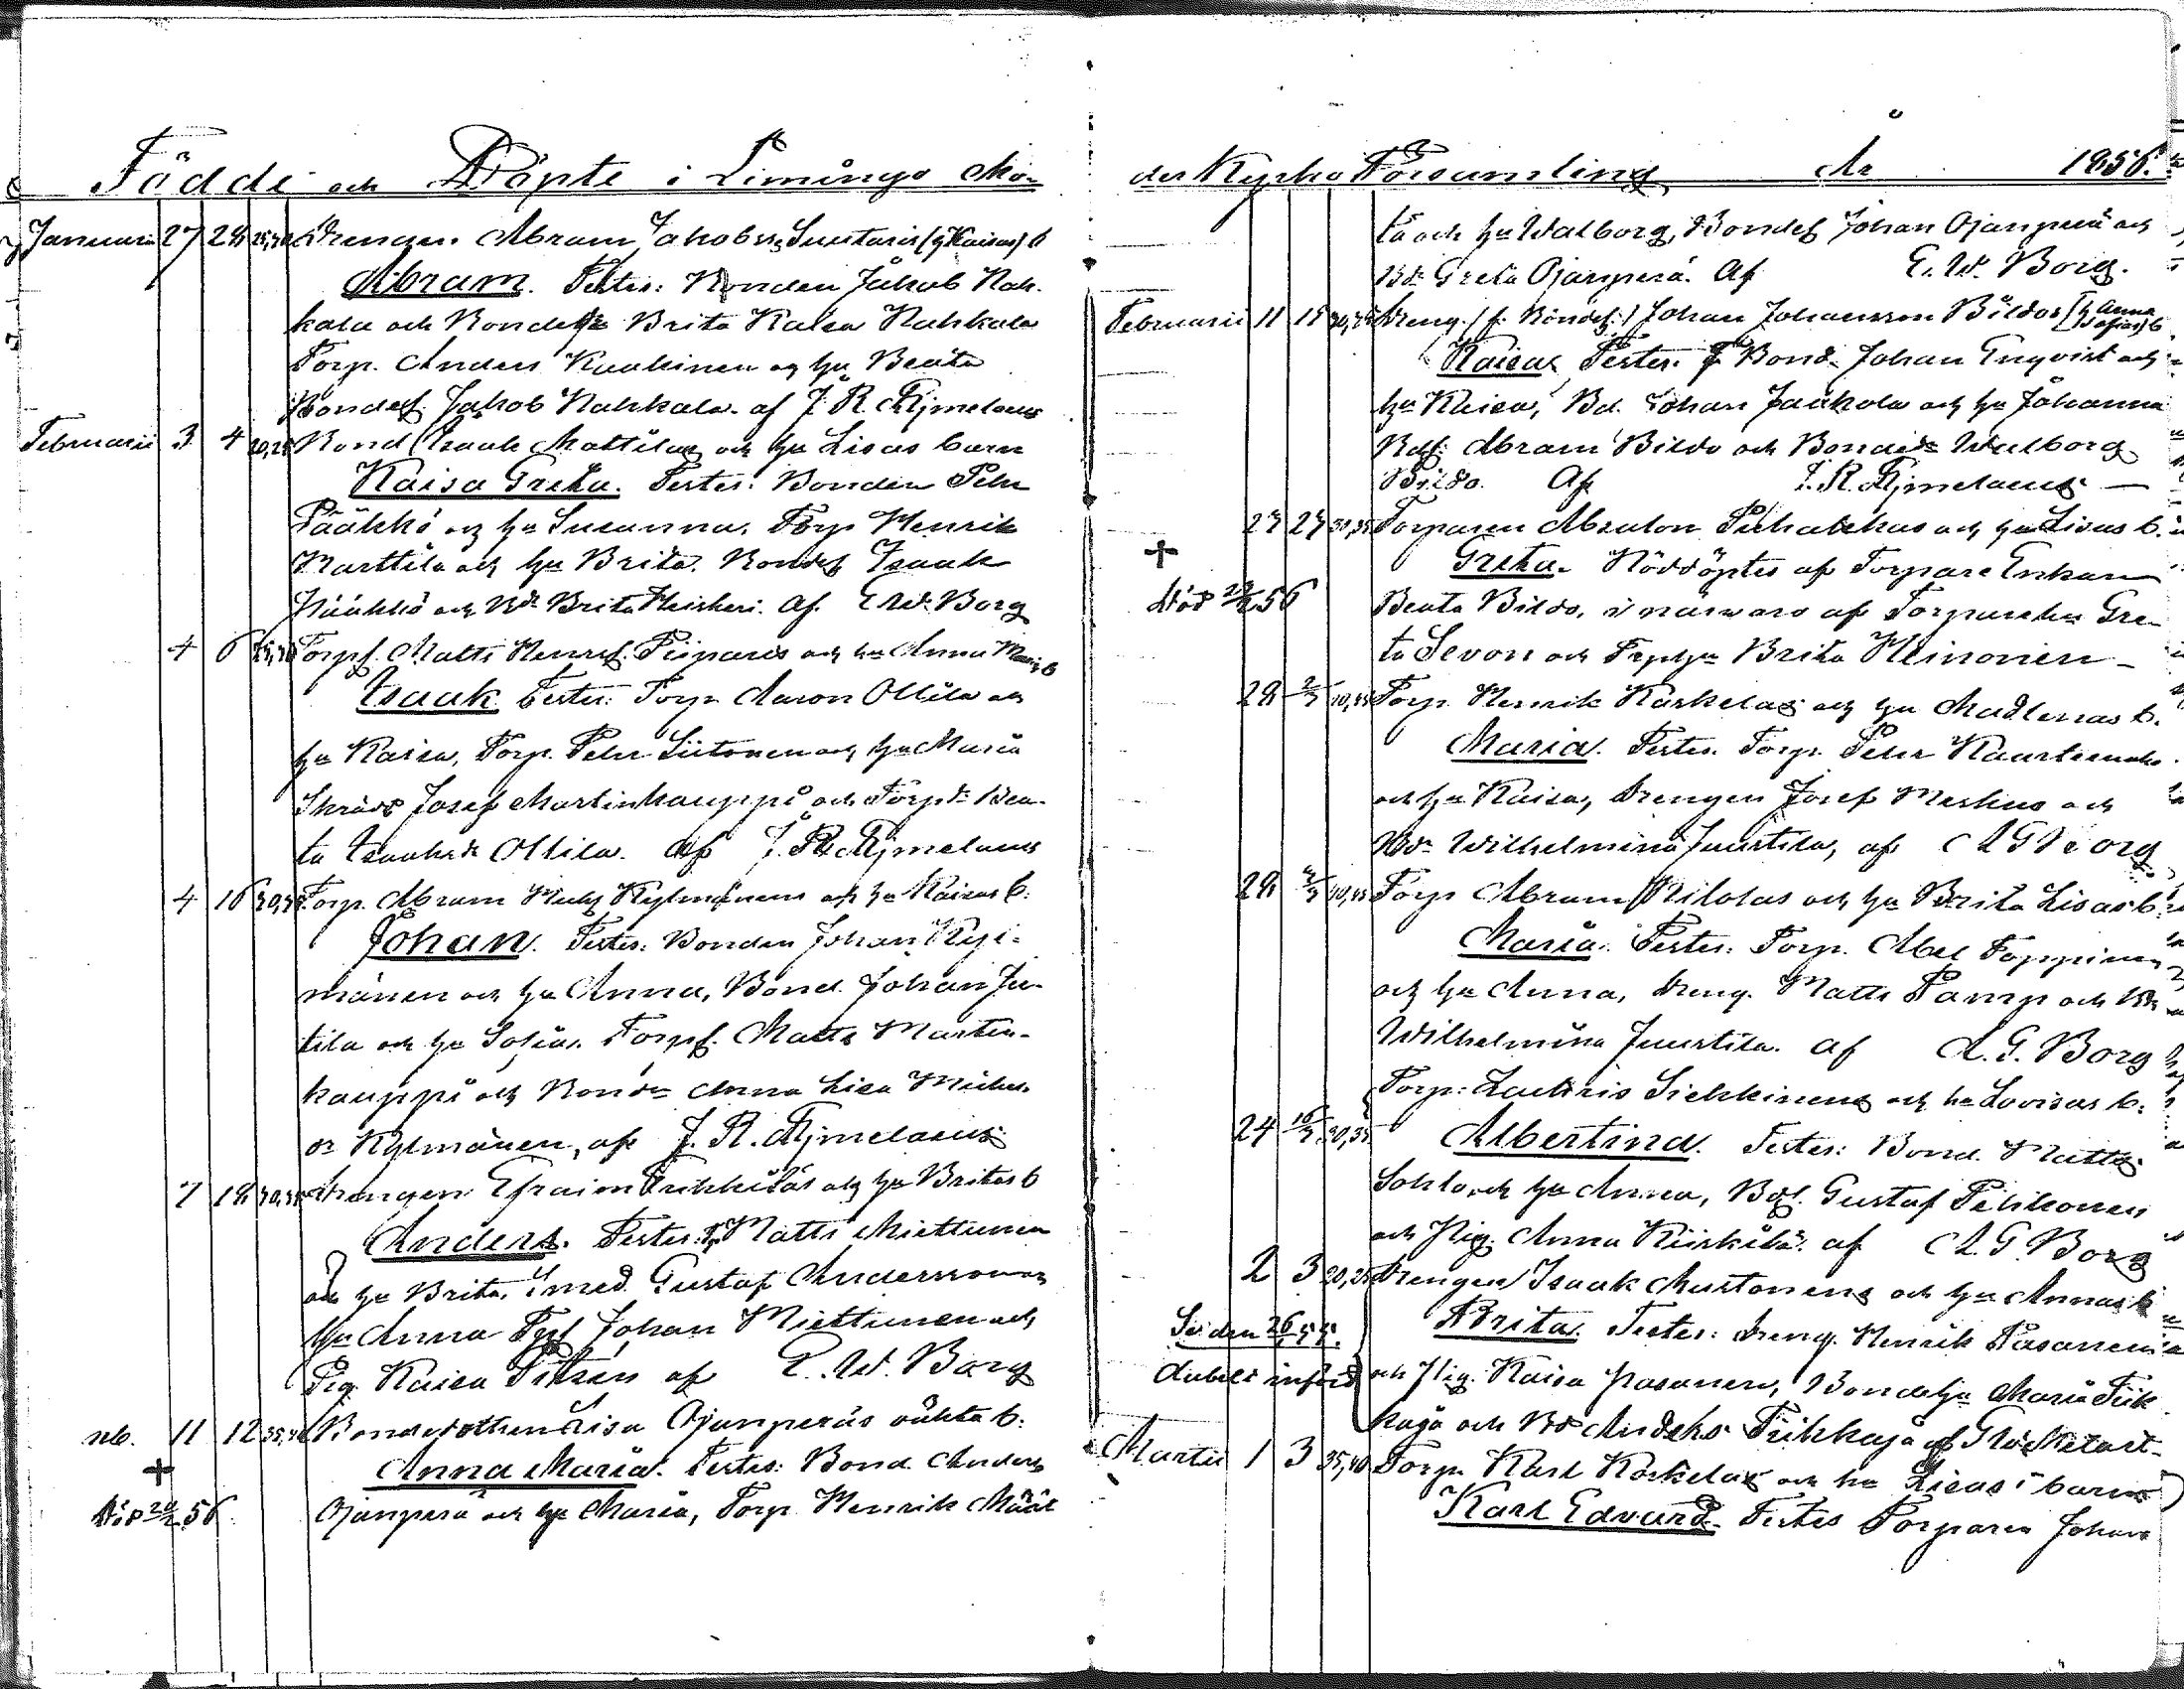 Födde och Döpte i Limingo Mo-
Januarii 27 28 25,30 Drengen Abram Jakobss. Suutaris (h Kaisas) b
Abram. Testes: Bonden Jakob Nah-
kala och Bondeh:u Brita Kaisa Nahkala
Torp. Anders Kaakinen och h:u Beata
Bondes. Jakob Nahkala. af J. R. Hjmelaeus
Februarii 3 4 20,25 Bond Isaak Mattilas och h:u Lisas barn
Kaisa Greta. Testes: Bonden Petr
Pääkkö och h:u Susanna. Torp Henrik
Marttila och h:u Brita. Bondes Isaak
Pääkkö och Bd:r Brita Heiskeri. af. E. W. Borg
4 6 Torps. Matts Henrs. Piiparis och h:u Anna Mar. b
Isaak. Testes: Torp. Aaron Ollila och
h:u Kaisa, Torp. Petr Siitonen och h:u Maria
Skrädd Josef Martinkauppi och Torpd:r Bea-
ta Isaaksdr Ollila. af J. R. Hjmelaeus
4 16 Torp. Abram Kylmänens och h:u Kaisas b.
Johan. Testes: Bonden Johan Kyl-
mänen och h:u Anna, Bond. Johan Ju-
tila och h:u Sofia. Torps. Matts Martin-
kauppi och Bondd:r Anna Lisa Michels-
dr Kylmänen, af J. R. Hjmelaeus
7 18 30,35 Drengen Efraim Trikkiläs och h:u Britas b
Anders. Testes: Matts Miettunen
och h:u Brita. Smed. Gustaf Andersson och
h:u Anna Johan Miettunen och
Pig. Kaisa af E. W. Borg
11 12 35, Bondedottren Lisa Ojanperäs oäkta b.
+ Anna Maria. Testes: Bond. Anders
Död 56 Ojanperä och h:u Maria, Torp. Henrik Määt
der Kyrko Församling År 1856.
tä och h:u Walborg, Bondes Johan Ojanperä och
Bd:r Greta Ojanperä. Af E. W. Borg.
Februarii 11 15 Dreng. (f. Bondes.) Johan Johansson Bildos (h Anna Sofias) b
Kaisa. Testes. Bond. Johan Enqvist och
h:u Kaisa, Bd. Johan Jaakola och h:u Johanna
Bds: Abram Bildo och Bonded:r Walborg
Bildo. Af J. R. Hjmelaeus
27 27 30,35 Torparen Absalon och h:u Lisas b.
+ Greta. Nöddöptes af Torpare Enkan
Död 56 Beata Bildo, i närwaro af Torparehu Gre-
ta Sevon och Torph:u Brita Heinonen
28 2/3 40,45 Torp. Henrik Karkelas och h:u Madlenas b.
Maria. Testes. Torp. Petr
och h:u Kaisa, Drengen Josef Merkus och
Bd:r Wilhelmina Juustila, af A G Borg
28 40,45 Torp Abram Nikolas och h:u Brita Lisas b.
Maria. Testes: Torp. Abel Toppinen
och h:u Anna, Dreng. Matts Pamp och Bdr
Wilhelmina Juustila. af A. G. Borg
Torp: Zackris Siekkinens och hu Lovisas b.
24 16/3 30,35 Albertina. Testes: Bond. Matts
Sohlo, och h:u Anna, Bds. Gustaf Pelkonen
och Pig. Anna Kiiskilä. af A. G. Borg
2 3 20,25 Drengen Isaak Mustonens och h:u Annas b
Se den 26 55. Brita. Testes: Dreng. Henrik Pasanen
dubelt införd och Pig. Kaisa Pasanen, Bondeh:u Maria Tik
kaja och Bds Anders Tikkaja af
Martii 1 3 35,40 Torp. Karl Karkelas och hu Lisas barn
Karl Edvard. Testes Torparen Johan